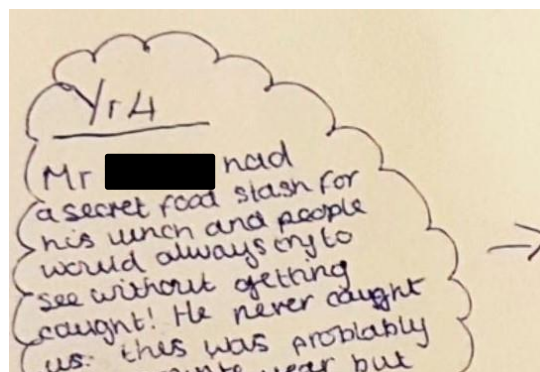 Yr4
Mr had
a secret food stash for
his lunch and people
would always try to
see without getting
caught! He never caught
us. this was problably
year but